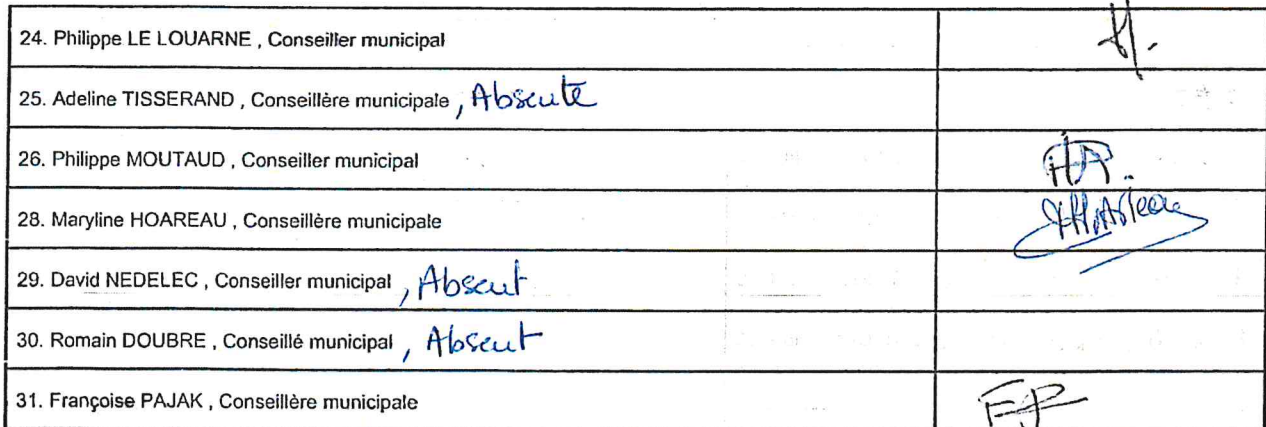 24. Philippe LE LOUARNE , Conseiller municipal
25. Adeline TISSERAND , Conseillère municipale , Absente
26. Philippe MOUTAUD , Conseiller municipal
28. Maryline HOAREAU , Conseillère municipale
29. David NEDELEC , Conseiller municipal , Absent
30. Romain DOUBRE , Conseillé municipal , Absent
31. Françoise PAJAK , Conseillère municipale